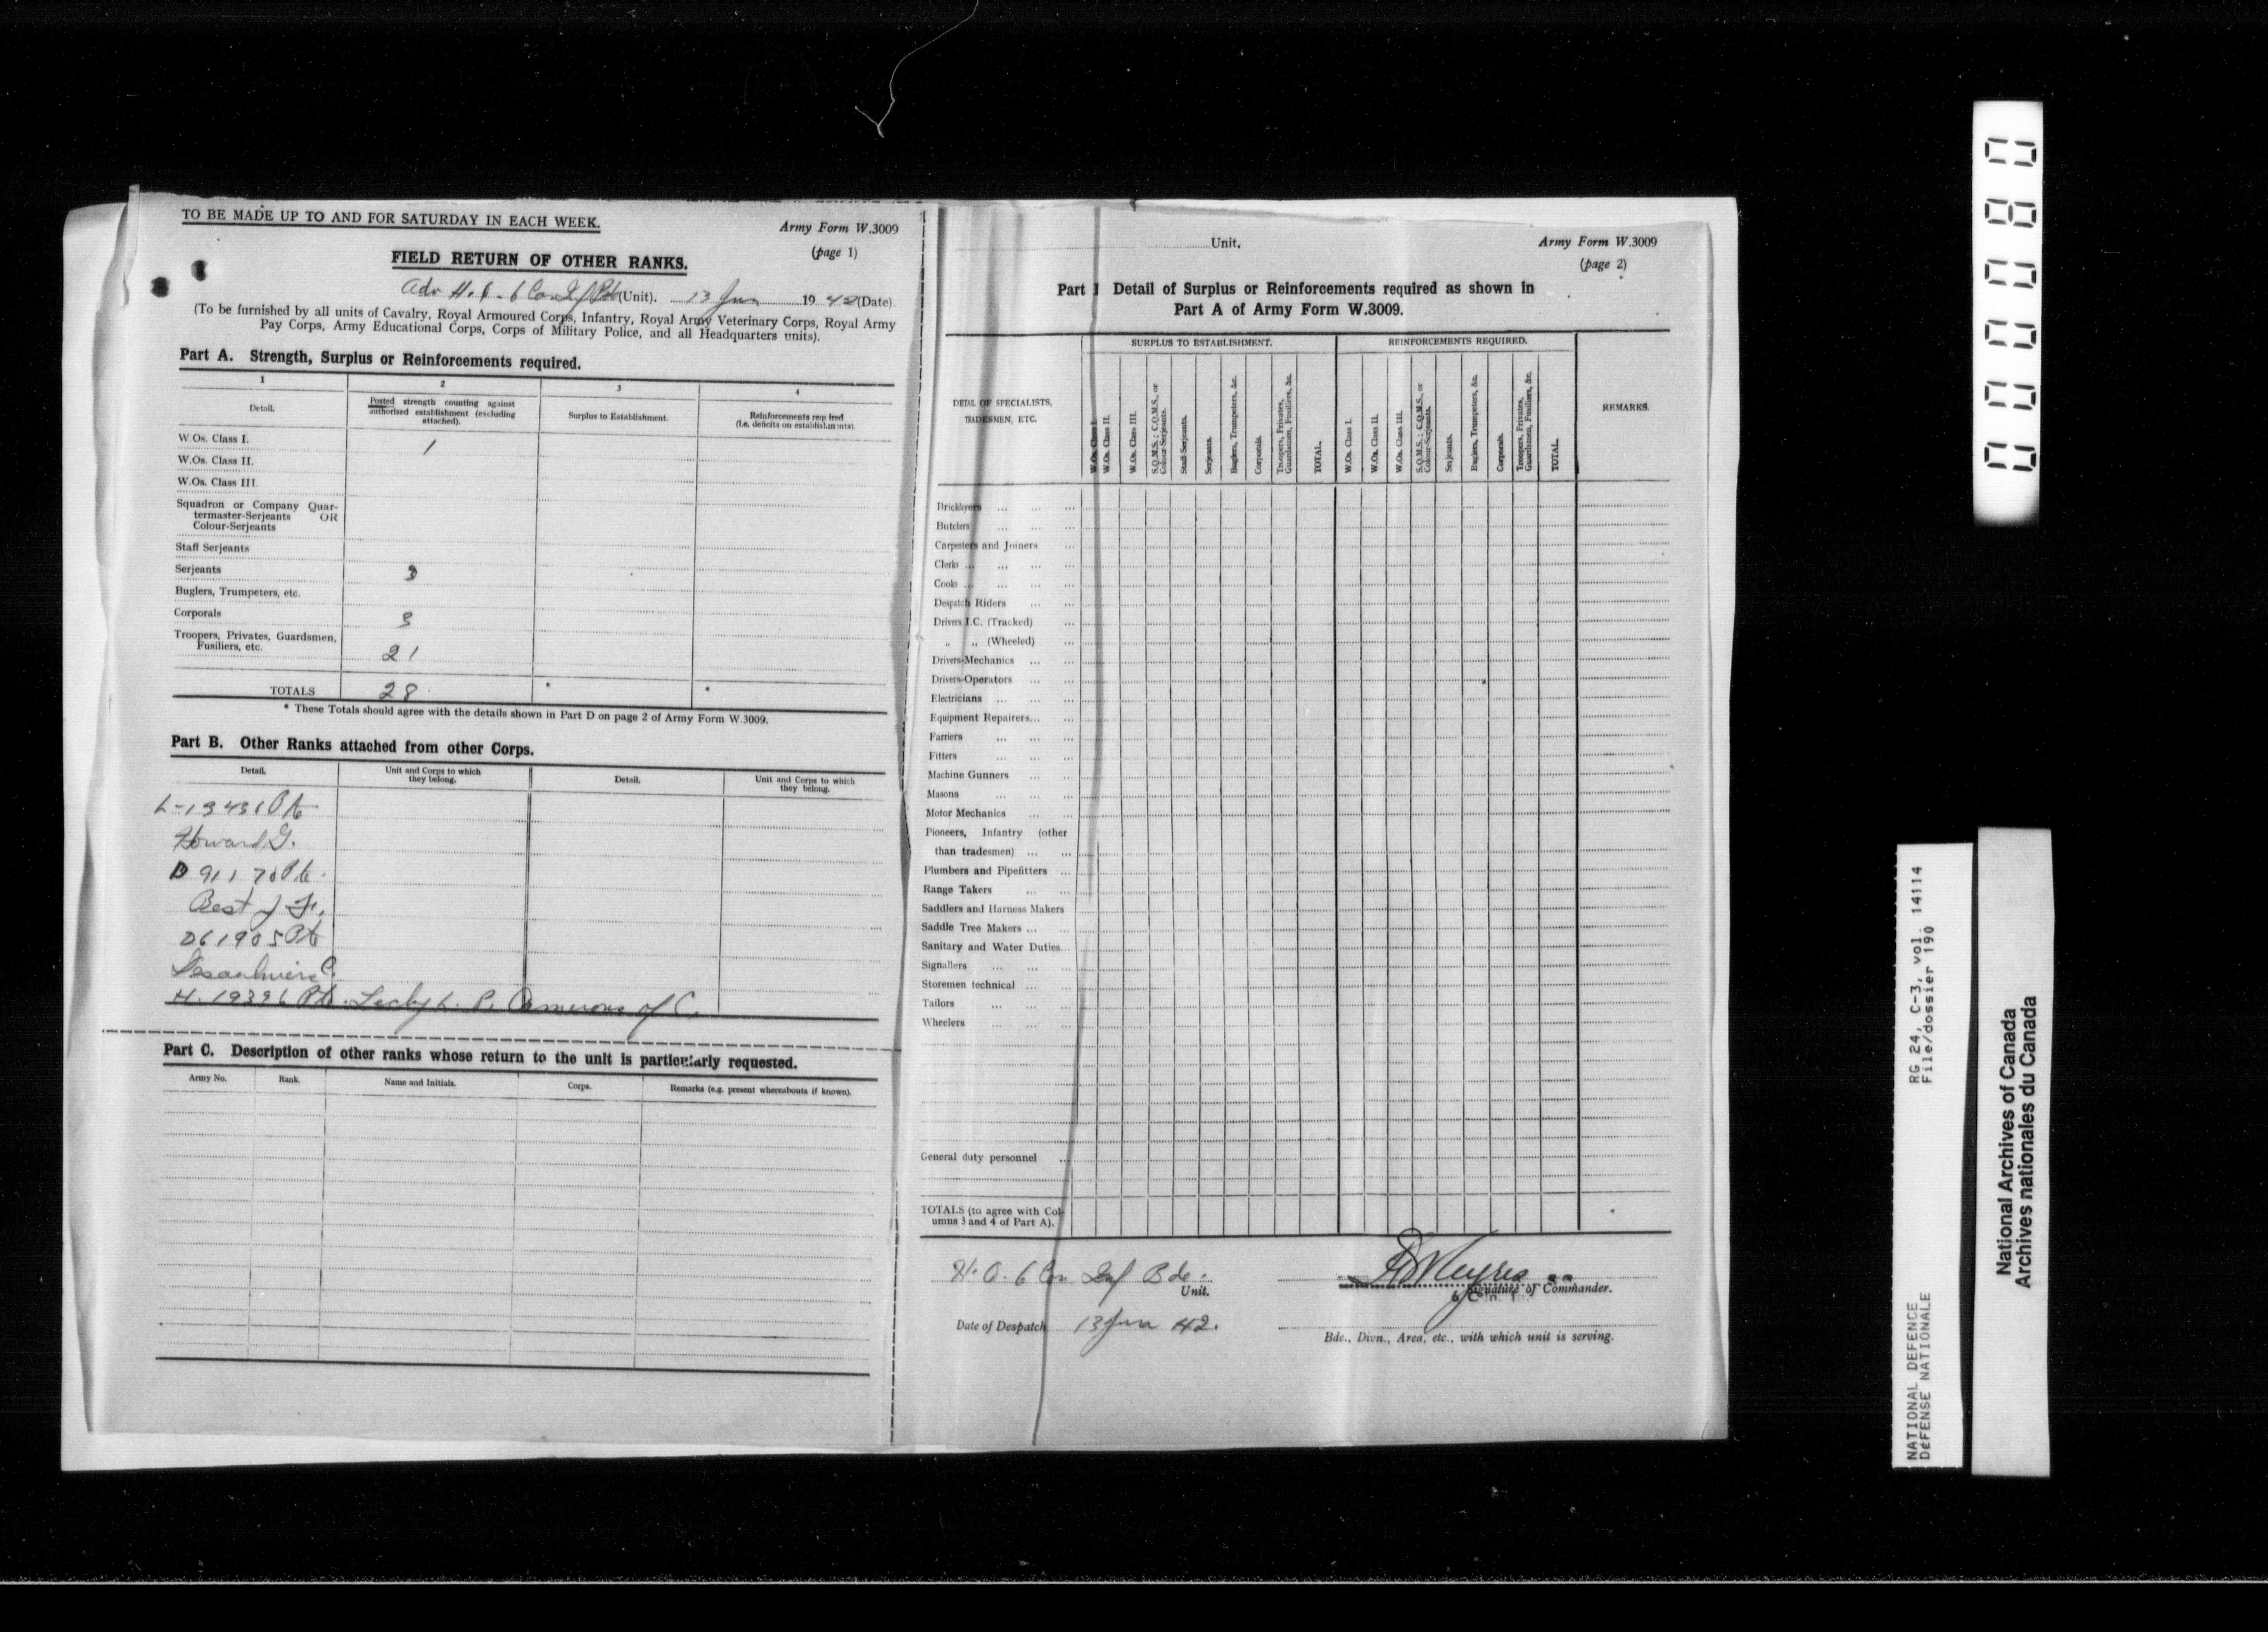 TO BE MADE UP TO AND FOR SATURDAY IN EACH WEEK.
Army Form W.3009
(page 1)
FIELD RETURN OF OTHER RANKS.
Adv H.Q. 6 Can Inf Bde (Unit). 13 Jun 1942 (Date).
(To be furnished by all units of Cavalry, Royal Armoured Corps, Infantry, Royal Army Veterinary Corps, Royal Army
Pay Corps, Army Educational Corps, Corps of Military Police, and all Headquarters units).
Part A. Strength, Surplus or Reinforcements required.
1 2 3 4
Detail.
Posted strength counting against
authorised establishment (excluding
attached).
Surplus to Establishment.
Reinforcements required
(i.e. deficits on establishments)
W.Os. Class I. 1
W.Os. Class II.
W.Os. Class III.
Squadron or Company Quar-
termaster-Serjeants OR
Colour-Serjeants
Staff Serjeants
Serjeants 3
Buglers, Trumpeters, etc.
Corporals 3
Troopers, Privates, Guardsmen,
Fusiliers, etc. 21
TOTALS 28 * *
* These Totals should agree with the details shown in Part D on page 2 of Army Form W.3009.
Part B. Other Ranks attached from other Corps.
Detail.
Unit and Corps to which
they belong.
Detail.
Unit and Corps to which
they belong.
L-13431 Pte
Howard G.
D 91170 Pte.
Best J
D61905 Pte
H. 19396 Pte. L. P. Camerons of C.
Part C. Description of other ranks whose return to the unit is particularly requested.
Army No. Rank. Name and Initials. Corps. Remarks (e.g. present whereabouts if known).
Unit.
Army Form W.3009
(page 2)
Part Detail of Surplus or Reinforcements required as shown in
Part A of Army Form W.3009.
SURPLUS TO ESTABLISHMENT. REINFORCEMENTS REQUIRED.
DETAIL OF SPECIALISTS,
TRADESMEN, ETC.
W.Os. Class I.
W.Os. Class II.
W.Os. Class III.
S.Q.M.S.; C.Q.M.S., or
Colour-Serjeants.
Staff-Serjeants.
Serjeants.
Buglers, Trumpeters, &c.
Corporals.
Troopers, Privates,
Guardsmen, Fusiliers, &c.
TOTAL.
W.Os. Class I.
W.Os. Class II.
W.Os. Class III.
S.Q.M.S.; C.Q.M.S., or
Colour-Serjeants.
Serjeants.
Buglers, Trumpeters, &c.
Corporals.
Troopers, Privates,
Guardsmen, Fusiliers, &c.
TOTAL.
REMARKS.
Bricklayers ... ... ...
Butchers ... ... ...
Carpenters and Joiners ...
Clerks ... ... ... ...
Cooks ... ... ... ...
Despatch Riders ... ...
Drivers I.C. (Tracked) ...
„ „ (Wheeled) ...
Drivers-Mechanics ... ...
Drivers-Operators ... ...
Electricians ... ... ...
Equipment Repairers... ...
Farriers ... ... ...
Fitters ... ... ...
Machine Gunners ... ...
Masons ... ... ...
Motor Mechanics ... ...
Pioneers, Infantry (other
than tradesmen) ... ...
Plumbers and Pipefitters ...
Range Takers ... ...
Saddlers and Harness Makers
Saddle Tree Makers ... ...
Sanitary and Water Duties...
Signallers ... ... ...
Storemen technical ... ...
Tailors ... ... ...
Wheelers ... ... ...
General duty personnel ...
TOTALS (to agree with Col-
umns 3 and 4 of Part A).
H.Q. 6 Can Inf Bde.
Unit.
Signature of Commander.
Date of Despatch 13 Jun 42.
Bde., Divn., Area, etc., with which unit is serving.
NATIONAL DEFENCE RG 24, C-3, vol. 14114
DÉFENSE NATIONALE File/dossier 190
National Archives of Canada
Archives nationales du Canada